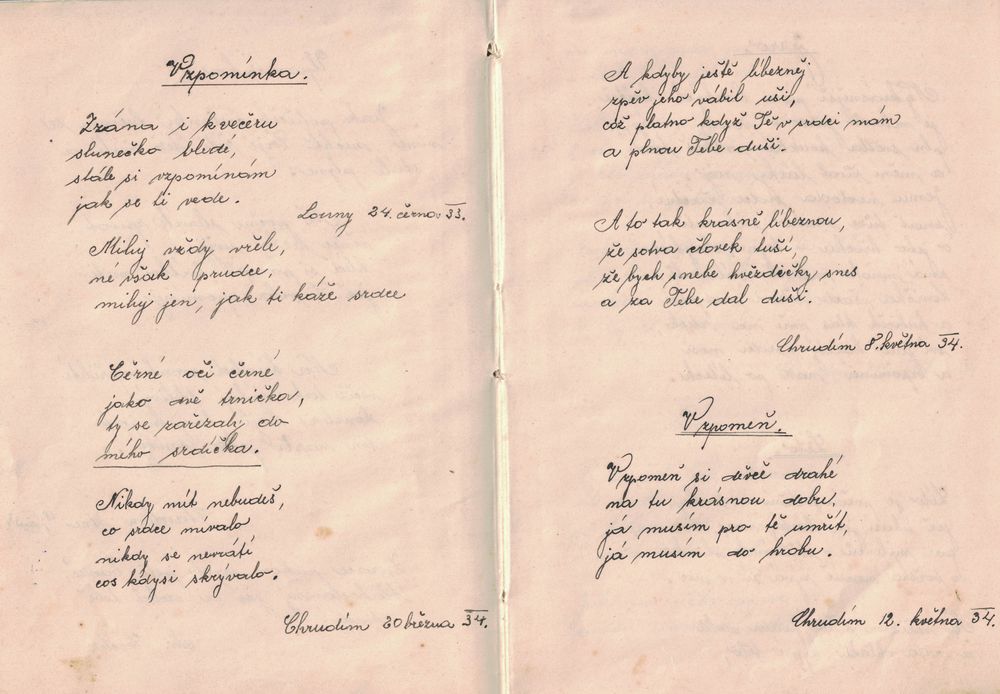 Vzpomínka.
Zrána i kvečěru
slunečko blede,
stále si vzpomínám
jak se ti vede.
Louny 24. černov 33.
Miluj vždy vřele,
né však prudce,
miluj jen, jak ti káže srdce
Čěrné oči čěrné
jako dvě trnička,
ty se zařézaly do
mého srdíčka.
Nikdy mít nebudeš,
co srdce mívalo
nikdy se nevrátí
cos kdysi skrývalo.
Chrudím 20 března 34.
A kdyby ještě líbezněj
zpěv jeho vábil uši,
což platno když Tě v srdci mám
a plnou Tebe duši.
A to tak krásně líbeznou,
že sotva človek tuší,
že bych snebe hvězděčky snes
a za Tebe dal duši.
Chrudím 8. května 34.
Vzpomeň.
Vzpomeň si děvčě drahé
na tu krásnou dobu,
já musím pro tě umřít,
já musím do hrobu.
Chrudím 12. května 34.